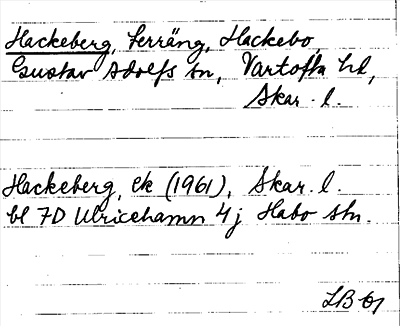 Hackeberg, terräng, Hackebo,
Gustav Adolfs sn, Vartofta hd,
Skar. l.
Hackeberg, ek (1961), Skar. l.
bl 7D Ulricehamn 4j Habo sn.
LB 61